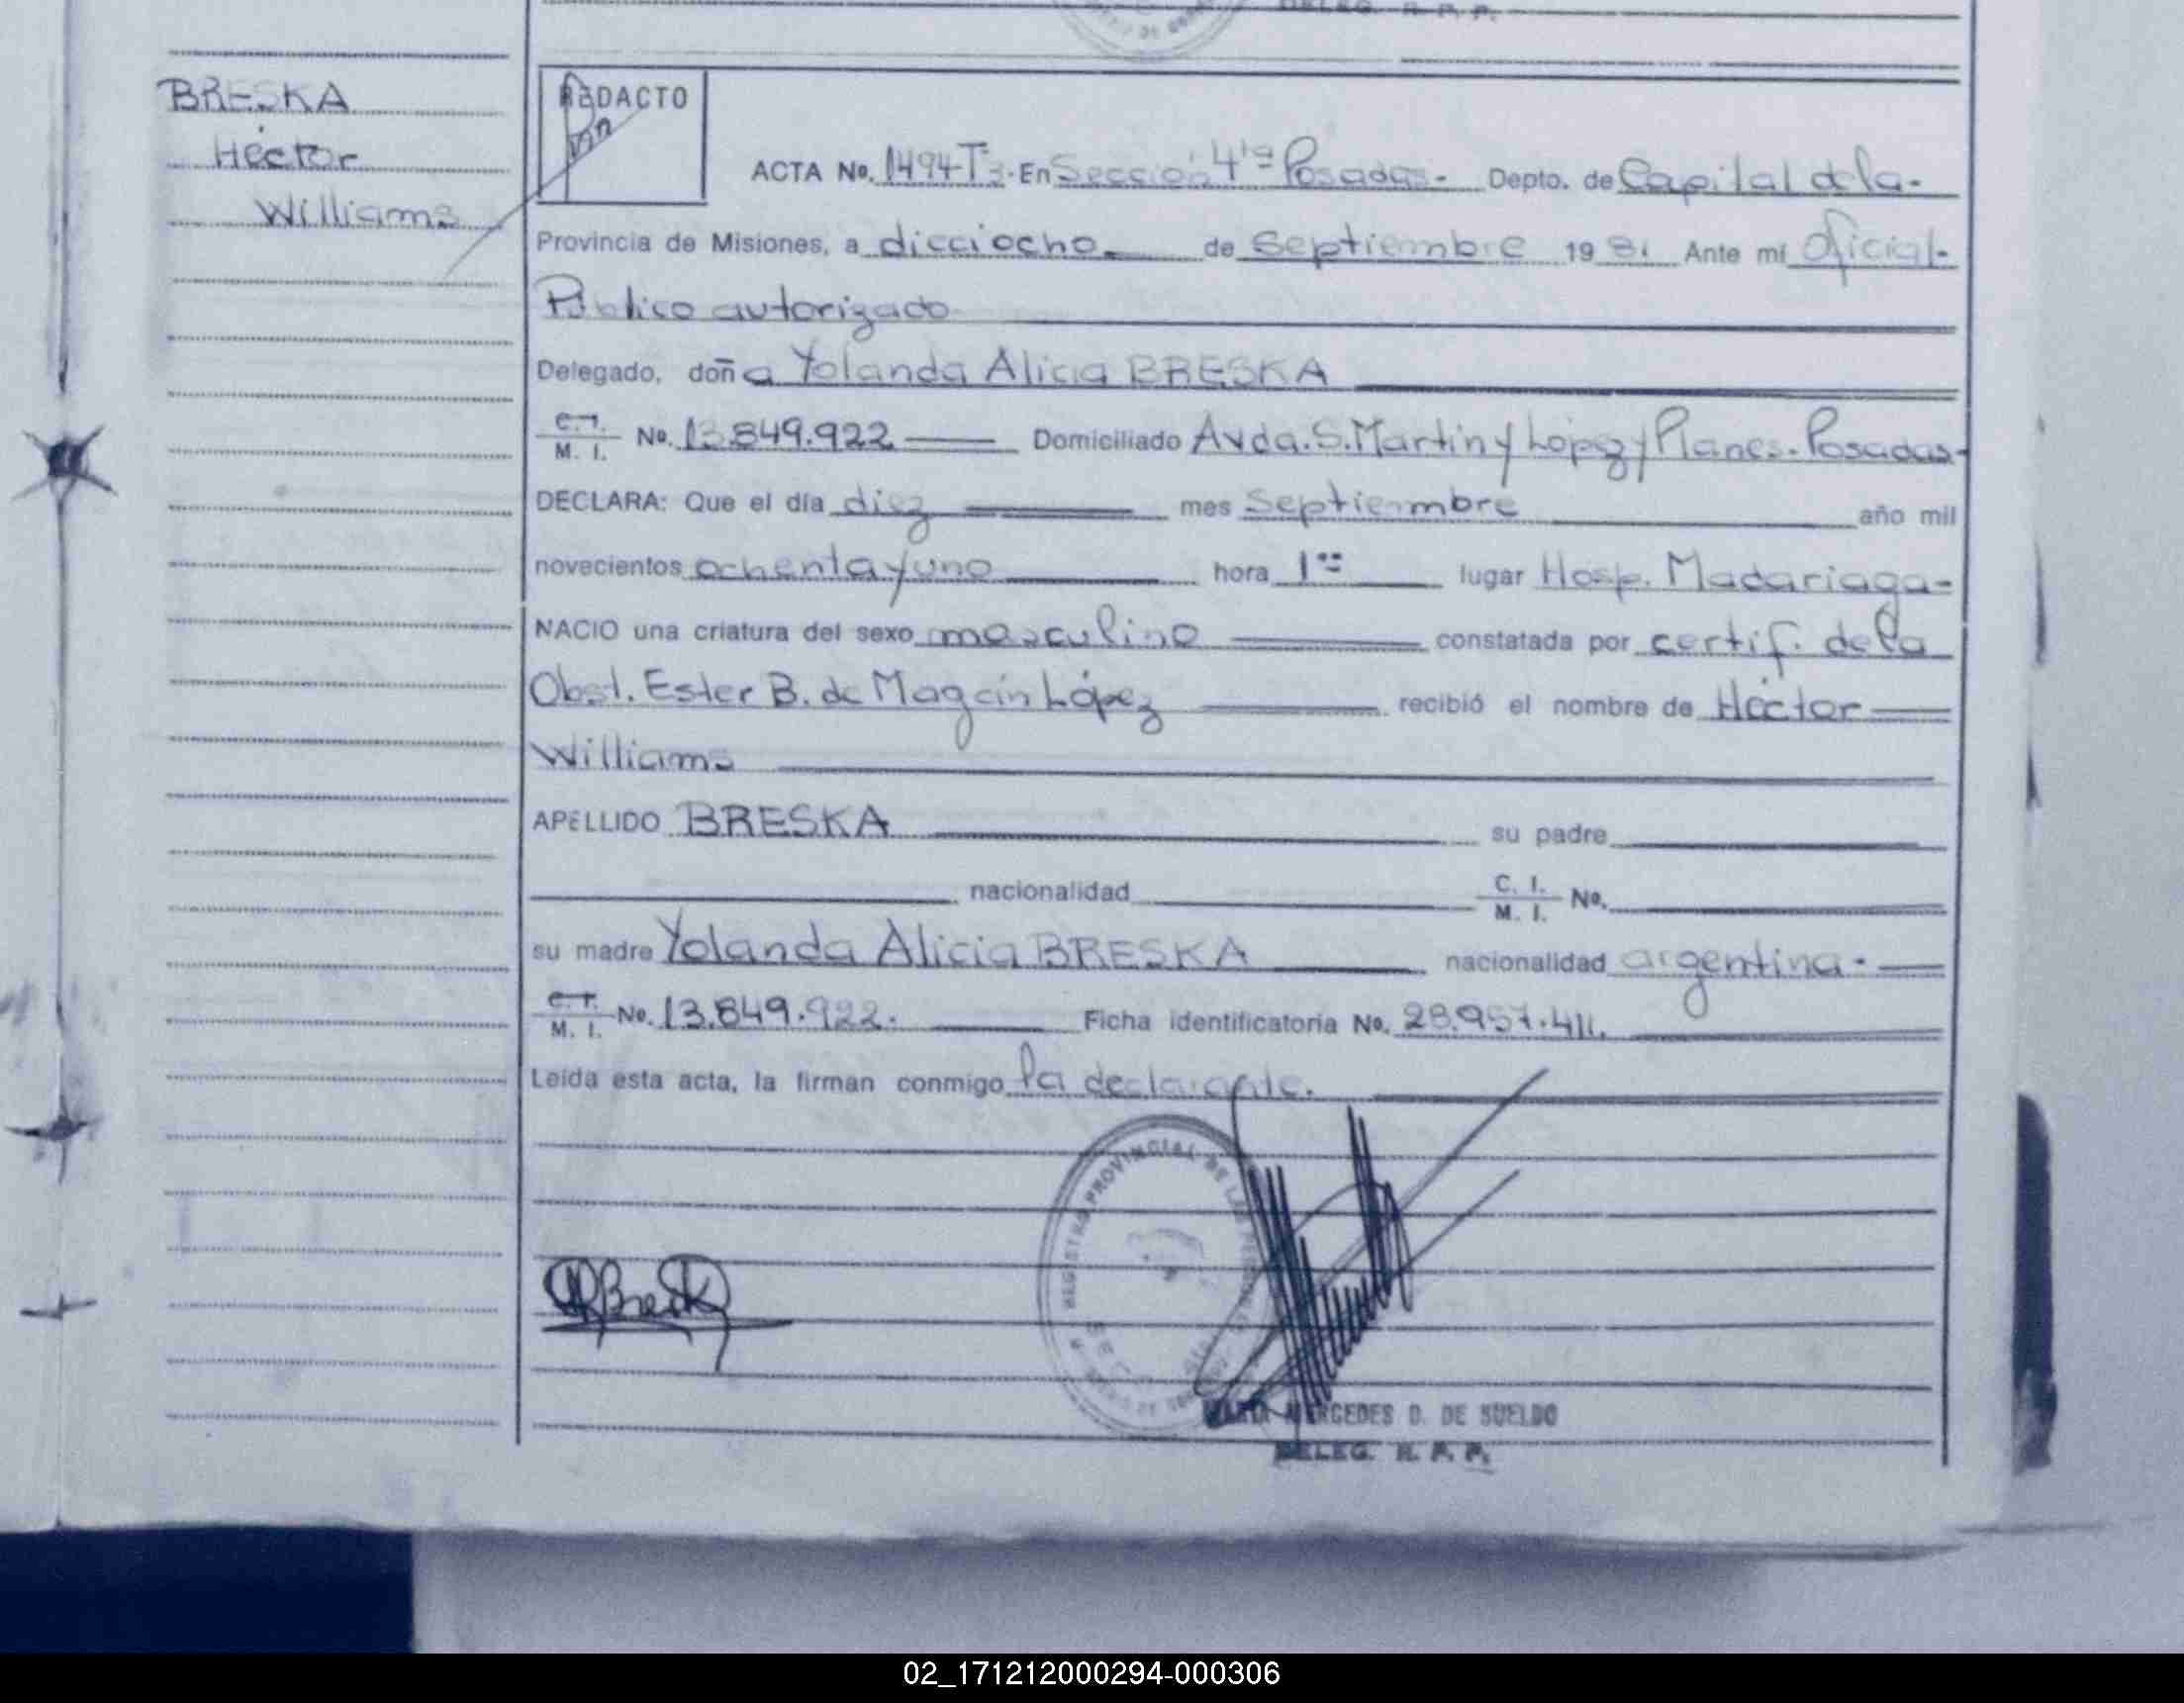 DELEG. R. P. P.
BRESKA
Héctor
Williams
REDACTO
ACTA No. 1494-T3. En Sección 4ta Posadas.- Depto. de Capital de la-
Provincia de Misiones, a dieciocho de Septiembre 1981 Ante mí Oficial-
Público autorizado
Delegado, doña Yolanda Alicia BRESKA
C. I.
M. I.
No. 13.849.922 Domiciliado Avda. S. Martin y López y Planes.- Posadas-
DECLARA: Que el día diez mes Septiembre año mil
novecientos ochenta y uno hora 1== lugar Hosp. Madariaga-
NACIO una criatura del sexo masculino constatada por certif. de la
Obst. Ester B. de Magain López recibió el nombre de Héctor
Williams
APELLIDO BRESKA su padre
nacionalidad C. I.
M. I. No.
su madre Yolanda Alicia BRESKA nacionalidad argentina.-
C. I.
M. I. No. 13.849.922. Ficha identificatoria No. 28.957.411.
Leída esta acta, la firman conmigo la declarante.
REGISTRO PROVINCIAL DE LAS PERSONAS
Breska
MARIA MERCEDES D. DE SUELDO
DELEG. R. P. P.
02_171212000294-000306